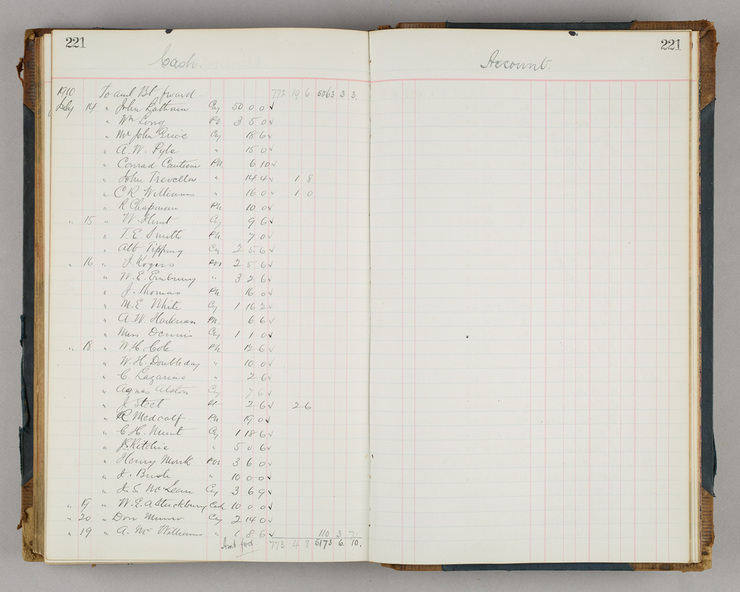 221
221
Cash.
Account.
1910 To amt Bt forward 772 19 6 6063 3 3.
July 14 " John Latham Cy 50 0 0
" Wm Long Por 3 5 0
" Mr John Grice Cy 18 6
" A. W. Pyle " 15 0
" Conrad Ph 6 10
" John Trevellor " 14 4 1 8
" C R Williams " 16 0 1 0
" R Chapman Ph 10 0
" 15 " W Hunt Cy 9 6
" T. E. Smith Ph 7 0
" Alb Tipping Cy 2 5 6
" 16 " J Rogers Por 2 5 6
" W. E. Embury " 3 2 6
" J. Thomas Ph 16 0
" M. E. White Cy 1 16 2
" A. W. Hackman Ph 6 6
" Miss Dennis Cy 1 1 0
" 18 " W. H. Cole Ph 12 6
" W. H. Doubleday " 10 0
" C. Lazarus " 2 6
" Agnes Alston Cy 7 6
" Stoct 7 6 2 6
" R Medcalf Ph 19 0
" C H. Hunt Cy 1 18 6
" J Ritchie " 5 0 6
" Henry Monk Por 3 6 0
" J. Bush " 10 0 0
" J. S. McLean Cy 3 6 9
" 19 " W. E. A. Stuckbury 10 0 0
" 20 " Don Munro Cy 2 14 0
" 19 " A. McWilliams " 8 6 110 3 7.
Amt fwd. 773 4 8 6173 6 10.